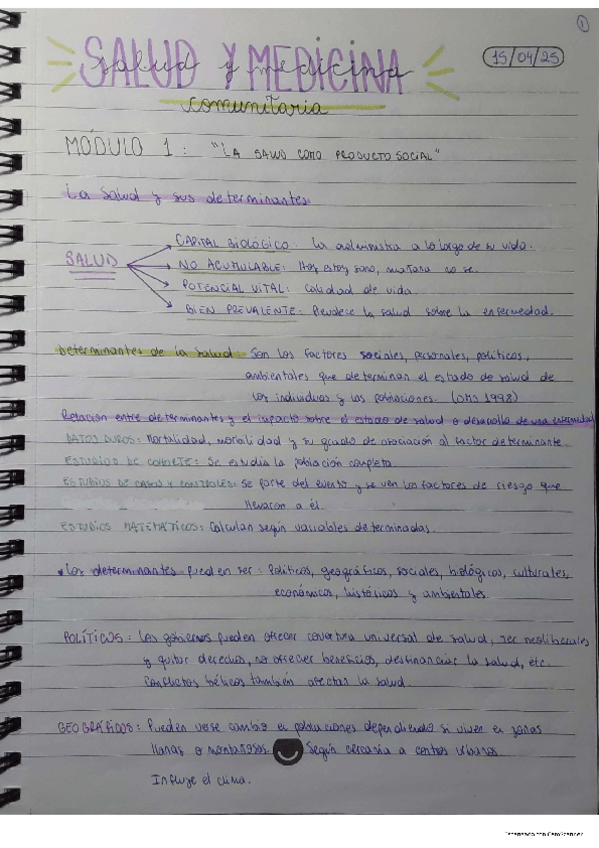 1
SALUD Y MEDICINA
salud y medicina
15/04/25
comunitaria
MÓDULO 1: "LA SALUD COMO PRODUCTO SOCIAL"
La Salud y sus determinantes.
CAPITAL BIOLÓGICO: La administra a lo largo de su vida.
SALUD
NO ACUMULABLE: Hoy estoy sano, mañana no se.
POTENCIAL VITAL: Calidad de vida.
BIEN PREVALENTE: Prevalece la salud sobre la enfermedad.
Determinantes de la salud: Son los factores sociales, personales, políticos,
ambientales que determinan el estado de salud de
los individuos y las poblaciones. (OMS 1998)
Relación entre determinantes y el impacto sobre el estado de salud o desarrollo de una enfermedad
DATOS DUROS: Mortalidad, morbilidad y su grado de asociación al factor determinante.
ESTUDIOS DE COHORTE: Se estudia la población completa.
ESTUDIOS DE CASOS Y CONTROLES: Se parte del evento y se ven los factores de riesgo que
llevaron a él.
ESTUDIOS MATEMÁTICOS: Calculan según variables determinadas.
• Los determinantes pueden ser: Políticos, geográficos, sociales, biológicos, culturales,
económicos, históricos y ambientales.
POLÍTICOS: Los gobiernos pueden ofrecer covertura universal de salud, ser neoliberales
y quitar derechos, no ofrecer beneficios, desfinanciar la salud, etc.
Conflictos bélicos también afectan la salud.
GEOGRÁFICOS: Pueden verse cambio en poblaciones dependiendo si viven en zonas
llanas o montañosas. Según cercanía a centros urbanos.
Influye el clima.